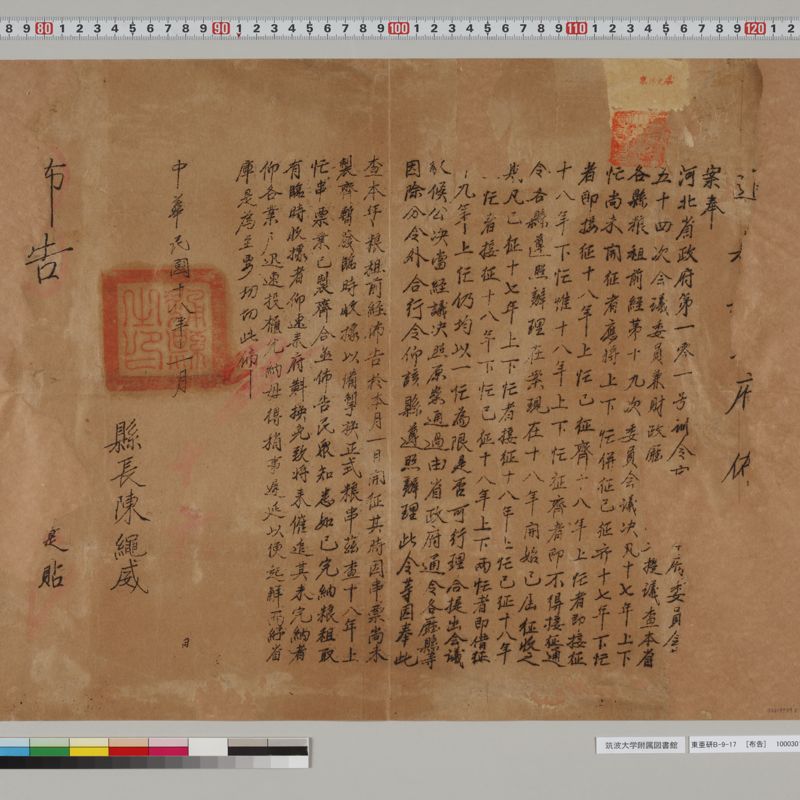 案奉
河北省政府第一零一号訓令
席委員会
五十四次会議委員兼財政廳
提議查本省
各縣粮租前經第十九次委員会議决凡十七年上下
忙尚未開征者應将上下忙併征已征齐十七年下忙
者即接征十八年上忙已征齊十八年上忙者即接征
十八年下忙惟十八年上下忙征齊者即不得接征通
令各縣遵照辦理在案現在十八年開始已屆征收之
凡已征十七年上下忙者接征十八年上忙已征十八年
忙者接征十八年下忙已征十八年上下两忙者即借征
九年上忙仍均以一忙為限是否可行理合提出会議
候公决當經議决照原案通過由省政府通令各廳縣等
因除分令外合行令仰該縣遵照辦理此令等因奉此
查本年粮租前經佈告於本月一日開征其時因串票尚未
製齊暫發臨時收據以備掣换正式粮串茲查十八年上
忙串票業已製齊合亟佈告民衆知悉如已完納粮租取
有臨時收據者仰速来府掣换免致将来催追其未完納者
仰各業户迅速投櫃完納毋得捎事遲延以便起解而紓省
庫是為至要切切此佈
中華民國十八年十一月
日
縣長陳繩威
布告
是貼
8 9 80 1 2 3 4 5 6 7 8 9 90 1 2 3 4 5 6 7 8 9 100 1 2 3 4 5 6 7 8 9 110 1 2 3 4 5 6 7 8 9 120 1 2
筑波大学附属図書館
東亜研B-9-17 [布告] 1000301